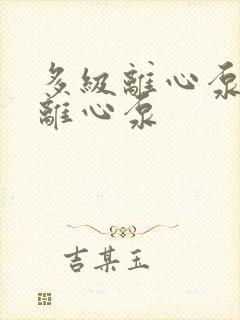 多級離心泵
離心泵
吉某玉